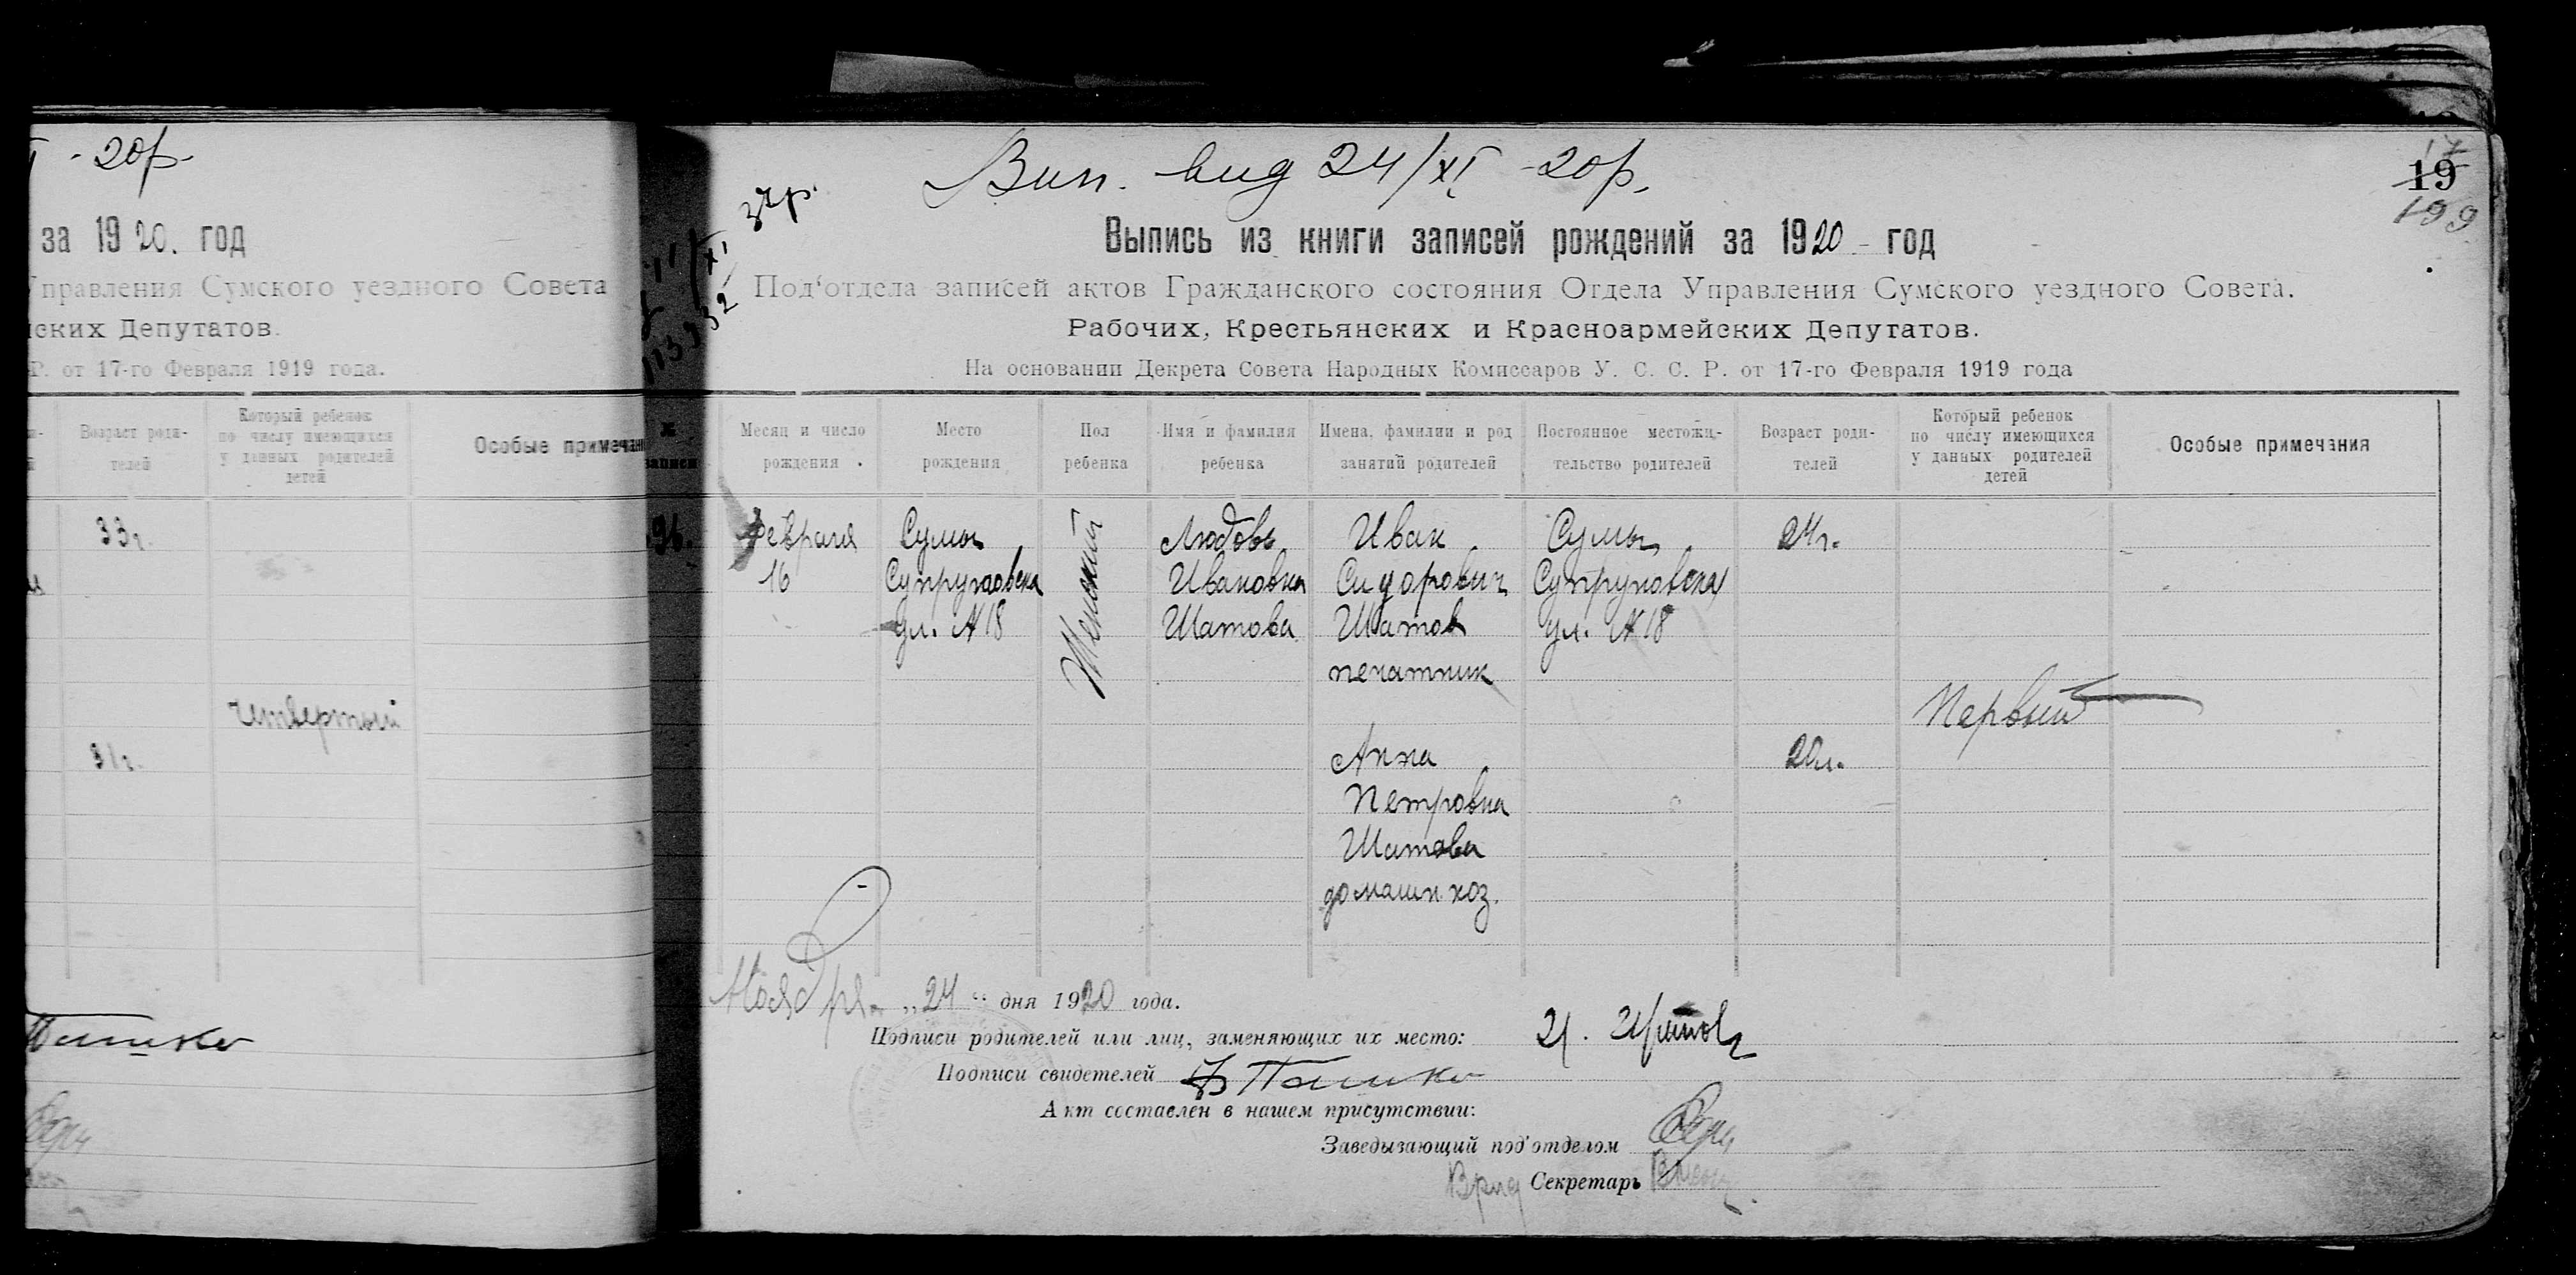 - 20р.
за 1920. год
Управления Сумского уездного Совета
ских Депутатов.
Р. от 17-го Февраля 1919 года.
Возраст родителей
Который ребенок по числу имеющихся у данных родителей детей
Особые примечан
33г.
четвертый
31г.
Вип. вид 24/XI -20р.
19
199
Выпись из книги записей рождений за 1920 год
Под‘отдела записей актов Гражданского состояния Отдела Управления Сумского уездного Совета.
Рабочих, Крестьянских и Красноармейских Депутатов.
На основании Декрета Совета Народных Комиссаров У. С. С. Р. от 17-го Февраля 1919 года
записи
Месяц и число
рождения
Место
рождения
Пол
ребенка
Имя и фамилия
ребенка
Имена, фамилии и род
занятий родителей
Постоянное местожи-
тельство родителей
Возраст роди-
телей
Который ребенок
по числу имеющихся
у данных родителей
детей
Особые примечания
96.
Февраля
16
Сумы
Супруновска
ул. №18
Женский
Любовь
Ивановна
Шатова
Иван
Сидорович
Шатов
печатник
Сумы
Супруновская
ул. №18
24г.
Первый
Анна
Петровна
Шатова
домашн. хоз.
20л.
Ноября „24“ дня 1920 года.
Подписи родителей или лиц, заменяющих их место: И. Шатов
Подписи свидетелей
Акт составлен в нашем присутствии:
Заведызающий под'отделом
Врид Секретарь